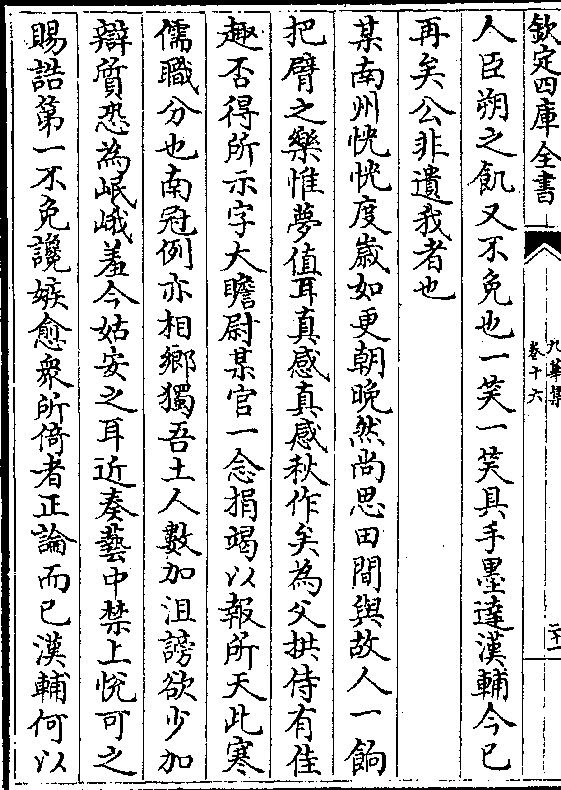 欽定四庫全書
九華集
卷十六
二十一
人臣朔之飢又不免也一笑一笑具手墨達漢輔今已
再矣公非遺我者也
某南州恍恍度歲如更朝晚然尚思田間與故人一餉
把臂之樂惟夢值耳真感真感秋作矣為父拱侍有佳
趣否得所示字大瞻尉某官一念捐竭以報所天此寒
儒職分也南冠例亦相鄉獨吾土人數加沮謗欲少加
辯質恐為岷峨羞今姑安之耳近奏藝中禁上悅可之
賜誥第一不免讒嫉愈衆所倚者正論而已漢輔何以